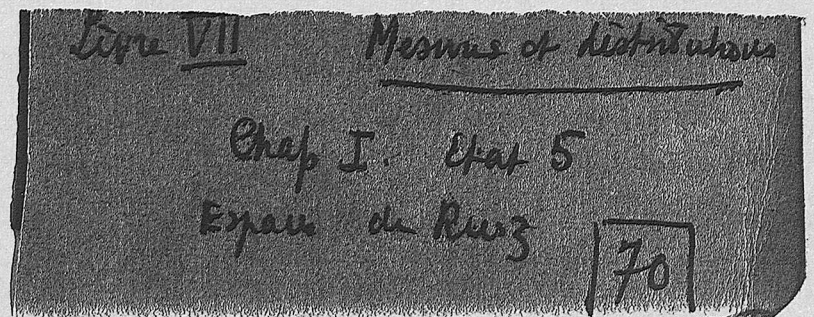 Livre VII Mesures et distributions
Chap I. Etat 5
Espaces de Riesz
70